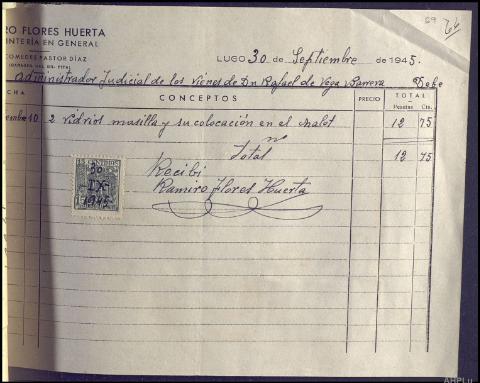 69 74
RO FLORES HUERTA
INTERÍA EN GENERAL
COMEDES PASTOR DÍAZ
(GRANXAS DEL SR. PITA)
LUGO 30 de Septiembre de 1945.
administrador Judicial de los vienes de Dn Rafael de Vega Barrera Debe
CHA CONCEPTOS PRECIO TOTAL
Pesetas Cts.
embre 10 2 vidrios masilla y su colocación en el chalet 12 75
Total 12 75
Recibi
Ramiro Flores Huerta
15 CENTIMOS
30
IX
1945
AHPLu